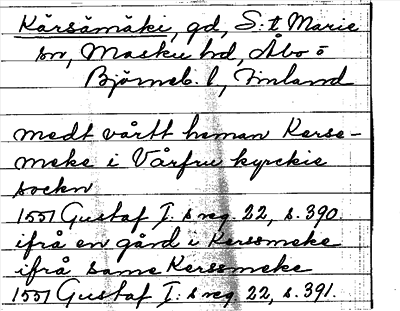 Kärsämäki, gd, S:t Marie
sn, Masku hd, Åbo o
Björneb. l, Finland
medt vårtt heman Kerse-
meke i Vårfru kyrckie
sockn
1557 Gustaf I:s reg 22, s. 390.
ifrå en gård i Kerssmeke
ifrå same Kerssmeke
1557 Gustaf I:s reg. 22, s. 391.